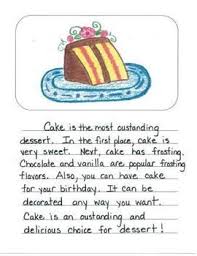 Cake is the most oustanding
dessert. In the first place, cake is
very sweet. Next, cake has frosting.
Chocolate and vanilla are popular frosting
flavors. Also, you can have cake
for your birthday. It can be
decorated any way you want.
Cake is an oustanding and
delicious choice for dessert!